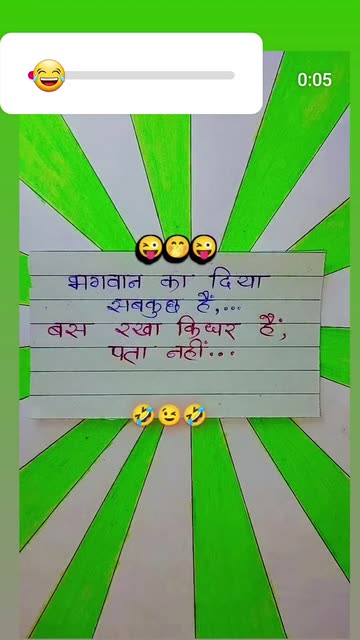 0:05
भगवान का दिया
सबकुछ है,...
बस रखा किधर है,
पता नहीं...